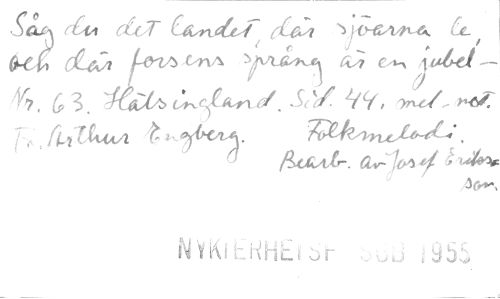 Såg du det landet, där sjöarna le,
och där forsens språng är en jubel-
Nr. 63. Hälsingland. Sid. 44. mel-not.
Fr. Arthur Engberg. Folkmelodi.
Bearb. av Josef Eriks-
son.
NYKTERHETSF 1955